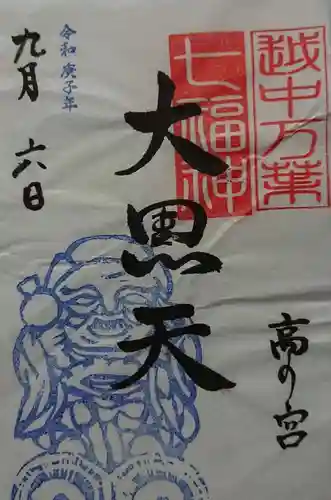 越中万葉
七福神
高の宮
大黒天
令和 庚子年
九月 六日